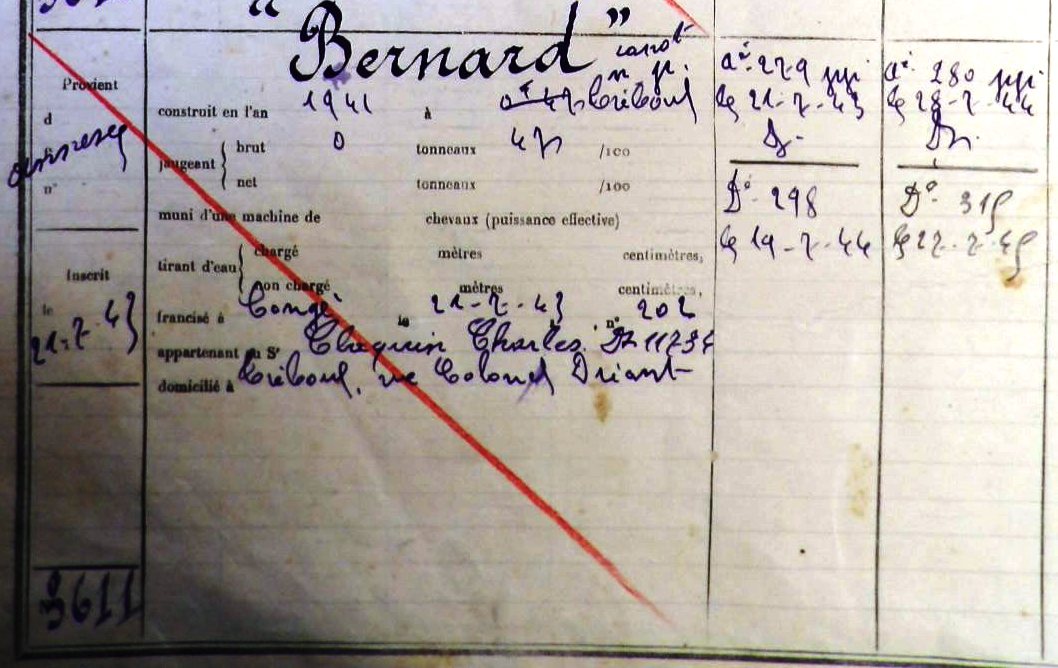 "Bernard" canot
n. p.
Provient
d
n°
construit en l'an 1941 à Tréboul
jaugeant { brut 0 tonneaux 47 /100
net tonneaux /100
muni d'une machine de chevaux (puissance effective)
tirant d'eau { chargé mètres centimètres,
non chargé mètres centimètres,
Inscrit
le 21-7-43
francisé à Congé le 21-7-43, n° 202
appartenant au Sr Charles. Dz 11734
domicilié à Tréboul. rue Colonel Driant
3611
a° 229 pp.
le 21-7-43
Dz.
D° 298
le 19-7-44
a° 280 pp.
Dz.
D° 315
le 22-7-45